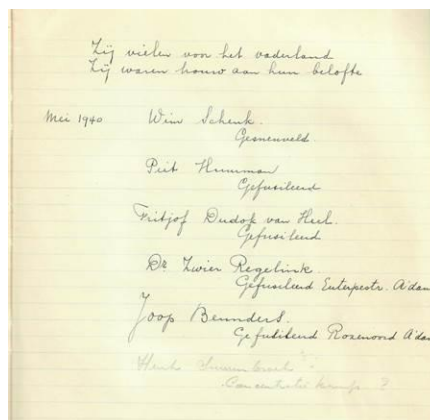 Zij vielen voor het vaderland
Zij waren trouw aan hun belofte
Mei 1940 Wim Schenk.
Gesneuveld.
Piet
Gefusileerd
Fritjof Dudok van Heel.
Gefusileerd
Dr Zwier Regelink.
Gefusileerd Euterpestr. A'dam
Joop Beunders.
Gefusileerd Rozenoord A'dam
Concentratiekamp ?